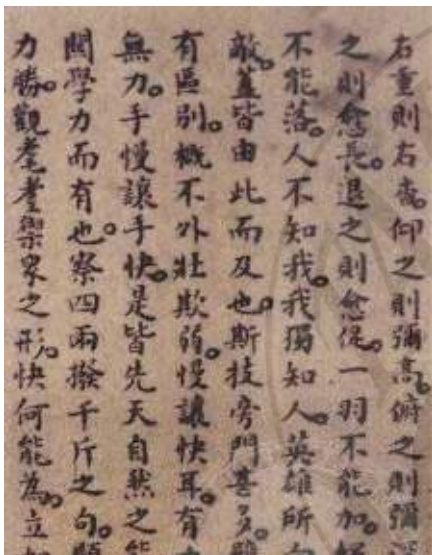 右重則右杳。仰之則彌高。俯之則彌
之則愈長。退之則愈促。一羽不能加。
不能落。人不知我。我獨知人。英雄所
敵。蓋皆由此而及也。斯技旁門甚多。
有區別。概不外壯欺弱。慢讓快耳。有
無力。手慢讓手快。是皆先天自然之能
關學力而有也。察四兩撥千斤之句。
力勝。觀耄耋禦衆之形。快何能為。立